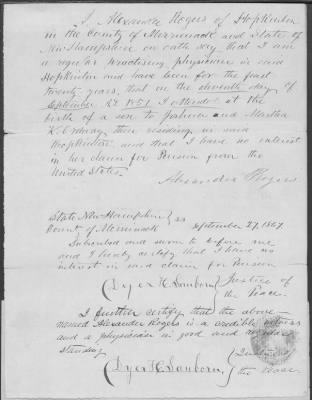 I, Alexander Rogers of Hopkinton
in the County of Merrimack and State of
New Hampshire on oath say that I am
a regular practising physician in said
Hopkinton and have been for the past
twenty years, that on the eleventh day of
September A.D. 1851 I attended at the
birth of a son to Joshua and Martha
K. Ordway then residing in said
Hopkinton and that I have no interest
in her claim for Pension from the
United States.
Alexander Rogers
State New Hampshire } ss
County of Merrimack September 27, 1867
Subscribed and sworn to before me
and I hereby certify that I have no
interest in said claim for Pension
(Dyer H. Sanborn { Justice of
the Peace.
I further certify that the above
named Alexander Rogers is a credible witness
and a physician in good and
standing
(Dyer H. Sanborn, { Justice
the Peace